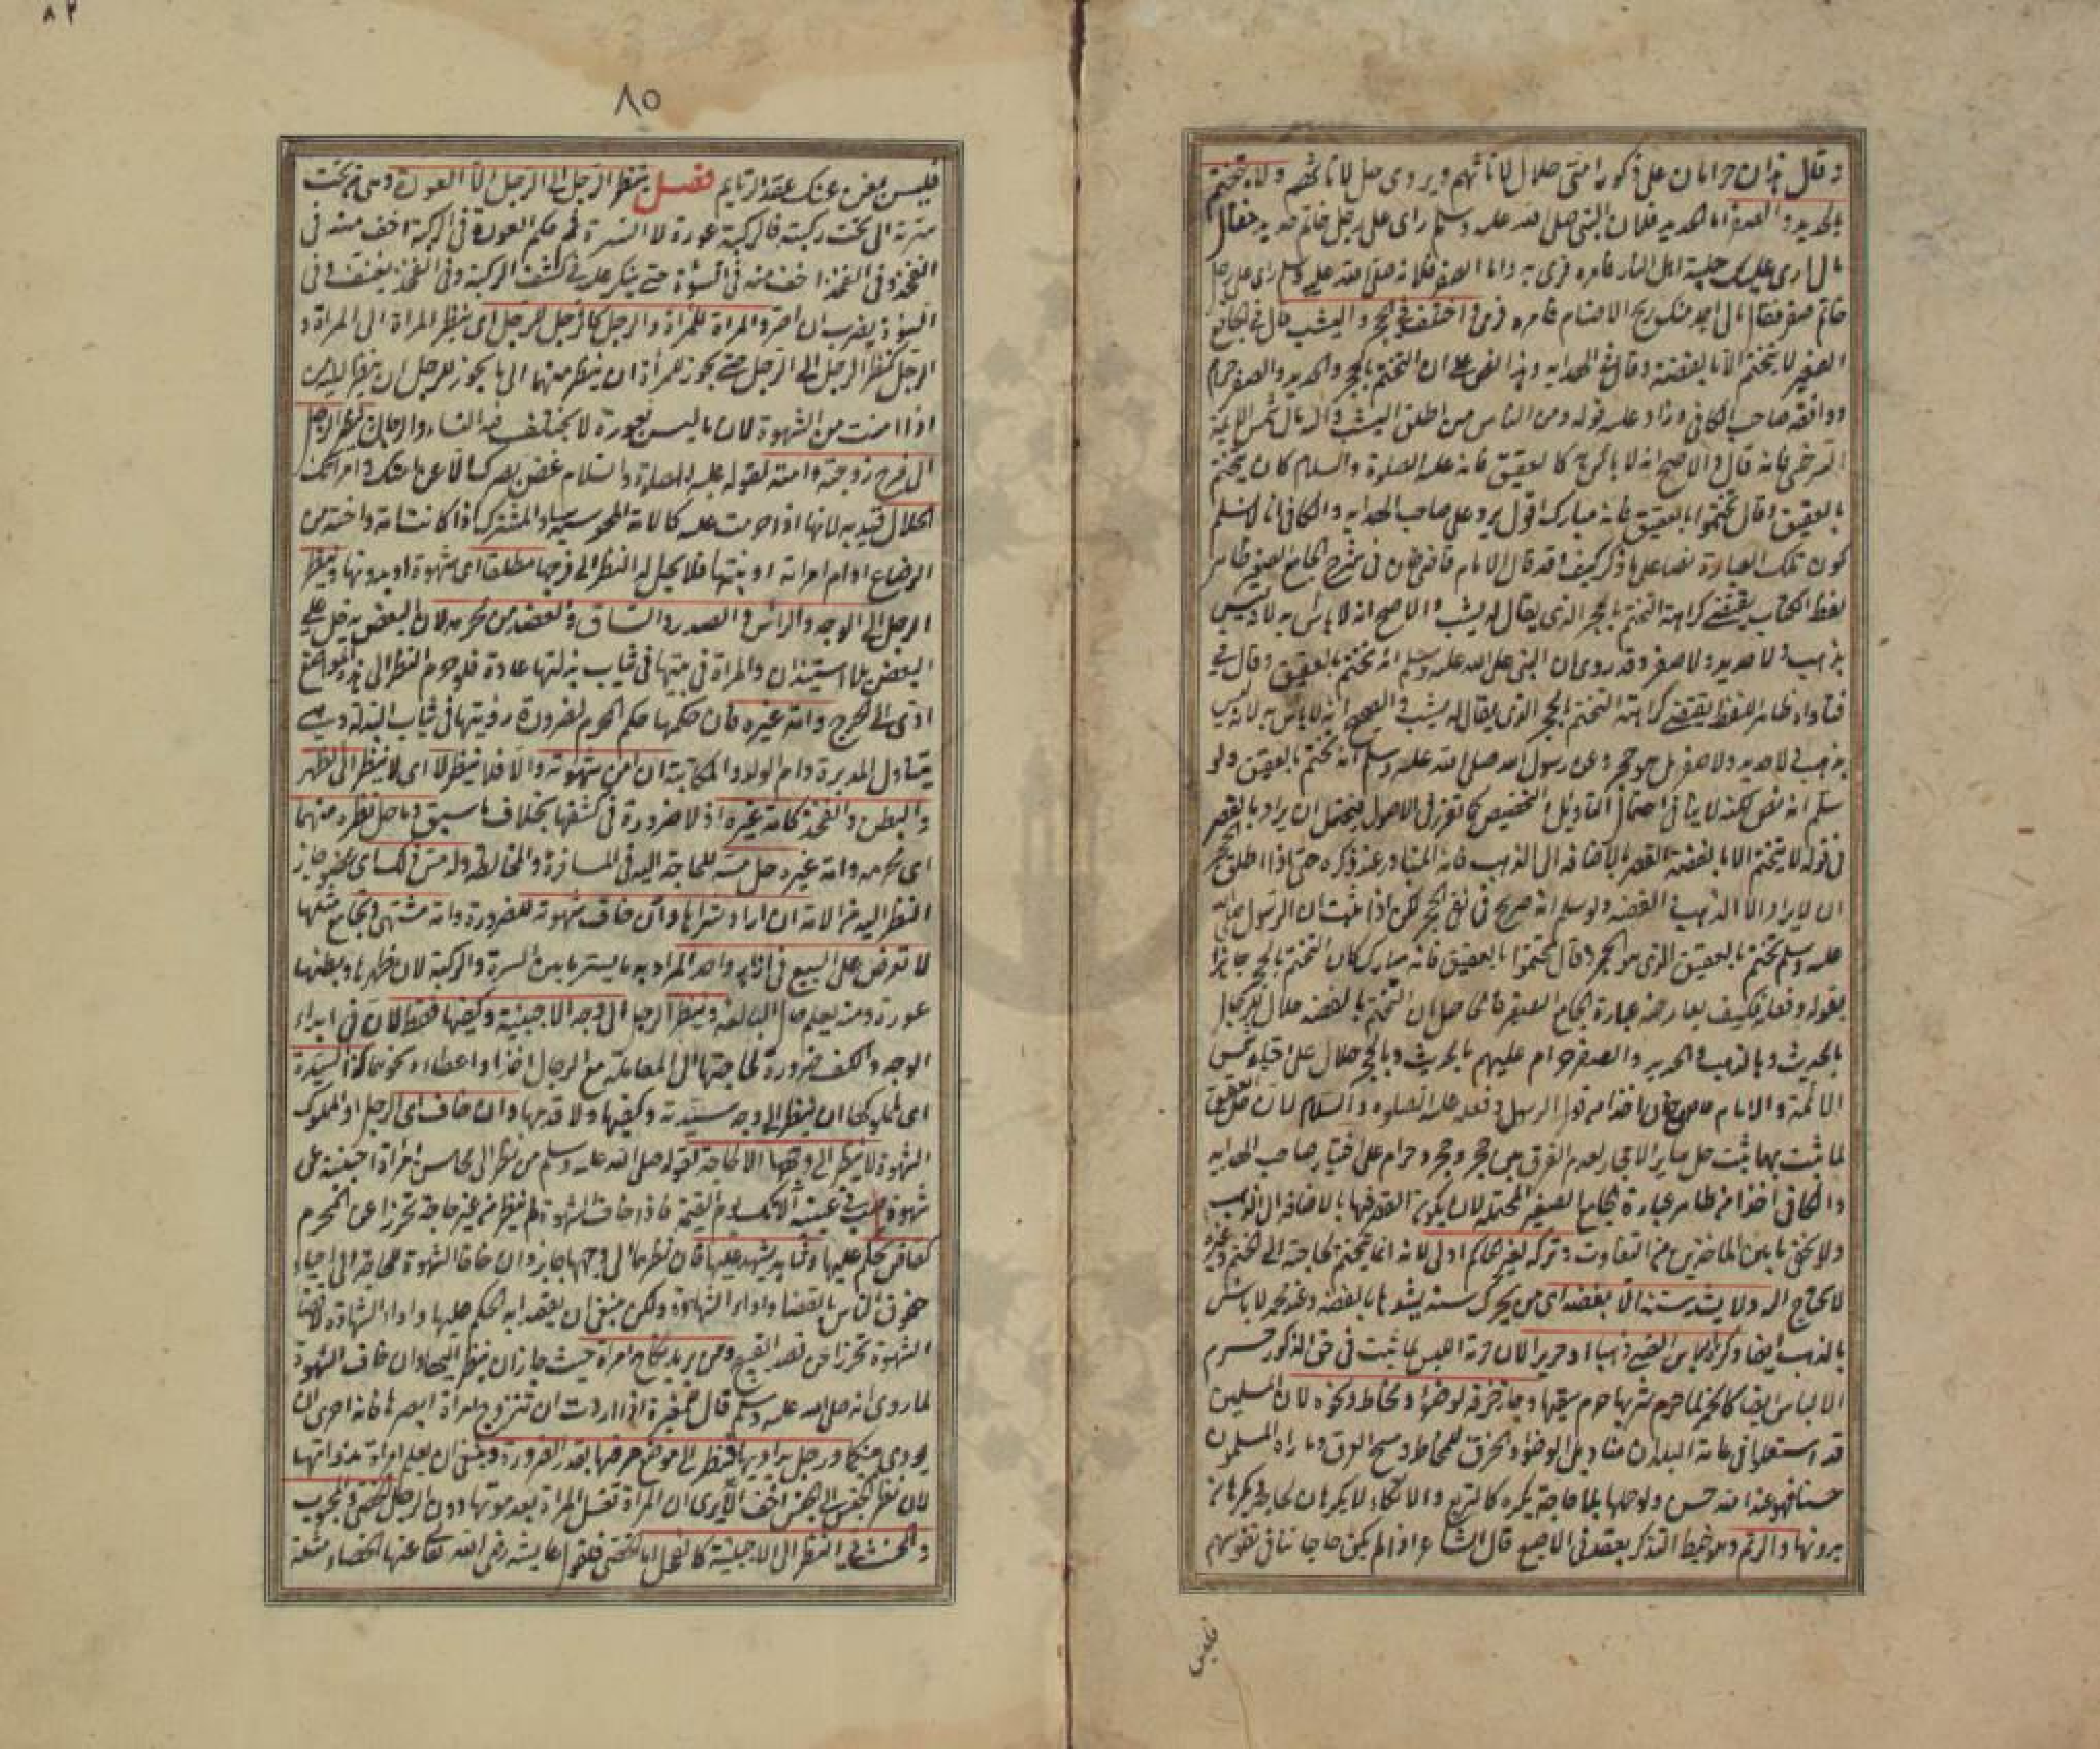 وقال هذان حرامان على ذكور امتي حلال لاناثهم ويروى حل لاناثهم ولا يتختم
بالحديد والصفر اما الحديد فلما ان النبي صلى الله عليه وسلم راى على رجل خاتم حديد فقال
مالى ارى عليك حلية اهل النار فامره فرمى به واما الصفر فلما انه صلى الله عليه وسلم راى على رجل
خاتم صفر فقال مالى اجد منك ريح الاصنام فامره فرمى واختلف في الحجر واليشب قال في الجامع
الصغير لا يتختم الا بالفضة وقال في الهداية وهذا نص على ان التختم بالحجر والحديد والصفر حرام
ووافقه صاحب الكافي وزاد عليه قوله ومن الناس من اطلق اليشب واليه مال شمس الايمة
السرخسي فانه قال والاصح انه لا باس به كالعقيق فانه عليه الصلوة والسلام كان يتختم
بالعقيق وقال تختموا بالعقيق فانه مبارك اقول يرد على صاحب الهداية والكافي انا لا نسلم
كون تلك العبارة نصا على ما ذكر كيف وقد قال الامام قاضيخان في شرح الجامع الصغير ظاهر
لفظ الكتاب يقتضي كراهة التختم بالحجر الذي يقال له يشب والاصح انه لا باس به لانه ليس
بذهب ولا حديد ولا صفر وقد روى ان النبي صلى الله عليه وسلم انه تختم بالعقيق وقال في
فتاواه ظاهر اللفظ يقتضي كراهة التختم بالحجر الذي يقال له يشب والصحيح انه لا باس به لانه ليس
بذهب لا حديد ولا صفر بل هو حجر وعن رسول الله صلى الله عليه وسلم انه تختم بالعقيق ولو
سلم انه نص لكنه لا ينافى احتمال التاويل والتخصيص كما تقرر في الاصول فيحتمل ان يراد بالقصر
في قوله لا يتختم الا بالفضة القصر بالاضافه الى الذهب فانه المتبادر عند ذكره حتى اذا اطلق الحجر
ان لا يراد الا الذهب والفضه ولو سلم انه صريح في نفى الحجر لكن اذا ثبت ان الرسول صلى الله
عليه وسلم تختم بالعقيق الذي هو الحجر وقال تختموا بالعقيق فانه مبارك كان التختم بالحجر جايزا
بقوله وفعله فكيف يعارضه عبارة الجامع الصغير فالحاصل ان التختم بالفضه حلال للرجال
بالحديث وبالذهب والحديد والصفر حرام عليهم بالحديث وبالحجر حلال على اختيار شمس
الائمة والامام قاضيخان اخذا من قول الرسول وفعله عليه الصلوه والسلام لان حل العقيق
لما ثبت بهما ثبت حل ساير الاحجار لعدم الفرق بين حجر وحجر وحرام على اختيار صاحب الهدايه
والكافي اخذا من ظاهر عبارة الجامع الصغير المحتملة لان يكون القصر فيها بالاضافه الى الذهب
ولا يخفى ما بين الماخذين من التفاوت وتركه لغير الحاكم اولى لانه انما يتختم لحاجته الى الختم وغيره
لا يحتاج اليه ولا يشد سنه الا بفضه اى من يحرك سنه يشدها بالفضه وعند محمد لا باس
بالذهب ايضا وكره الباس الصبي ذهبا او حريرا لان حرمة اللبس لما ثبت في حق الذكور حرم
الالباس ايضا كالخمر لما حرم شربها حرم سقيها وجاز خرقة لوضوء ومخاط ونحوه لان المسلمين
قد استعملوا في عامة البلدان مناديل الوضوء والخرق للمخاط ومسح العرق وما راه المسلمون
حسنا فهو عند الله حسن ولو حملها بلا حاجة يكره كالتربع والاتكاء لا يكرهان لحاجة ويكرهان
بدونها والرتم وهو خيط التذكر يعقد في الاصبع قال الشاعر اذا لم يكن حاجاتنا في نفوسهم
فليس
٨٥
فليس بمغن عنك عقد الرتايم فصل ينظر الرجل الى الرجل الا العورة وهي من تحت
سرته الى تحت ركبته فالركبة عورة لا السرة ثم حكم العورة في الركبة اخف منه في
الفخذ وفي الفخذ اخف منه في السوءة حتى ينكر عليه في كشف الركبة وفي الفخذ يعنف وفي
السوءة يضرب ان اصر والمراة للمراة والرجل كالرجل للرجل اى ينظر المراة الى المراة و
الرجل كنظر الرجل الى الرجل حتى يجوز للمراة ان ينظر منهما الى ما يجوز للرجل ان ينظر اليه من
اذا امنت من الشهوة لان ما ليس بعورة لا يختلف فيه النساء والرجال وينظر الرجل
الى فرج زوجته وامته لقوله عليه الصلاة والسلام غض بصرك الا عن امتك وامراتك
الحلال قيد به لانها اذا حرمت عليه كالامة المجوسية او المشتركة اذا كانت امة واخته من
الرضاع او ام امراته او بنتها فلا يحل له النظر الى فرجها مطلقا اى بشهوة او بدونها وينظر
الرجل الى الوجه والراس والصدر والساق والعضد من محرمه لان البعض يدخل على
البعض بلا استيذان والمراة في بيتها في ثياب بذلتها عادة فلو حرم النظر الى هذه المواضع
ادى الى الحرج وامة غيره فان حكمها حكم المحرم لضرورة رؤيتها في ثياب البذلة وهي
يتناول المدبرة وام الولد والمكاتبة ان امن شهوته والا فلا ينظر لا اى لا ينظر الى الظهر
والبطن والفخذ كامة غيره اذ لا ضرورة في كشفها بخلاف ما سبق وما حل نظره منهما
اى محرمه وامة غيره حل مسه للحاجة اليه في المسافرة والمخالطه وله مس ذلك اى عضو جاز
النظر اليه من الامة ان اراد شراها وان خاف شهوته للضرورة وامة تشتهى ويجامع مثلها
لا تعرض على البيع في ازار واحد المراد به ما يستر ما بين السرة والركبة لان ظهرها وبطنها
عورة ومنه يعلم حال البالغة وينظر الرجل الى وجه الاجنبية وكفيها فقط لان في ابداء
الوجه والكف ضرورة لحاجتها الى المعاملة مع الرجال اخذا واعطاء ونحوهما كذا السيدة
اى للمملوك ان ينظر الى وجه سيدته وكفيها ولا قدميها وان خاف اى الرجل او المملوك
الشهوة لا ينظر الى وجهها الا لحاجة لقوله صلى الله عليه وسلم من نظر الى محاسن امراة اجنبية عن
شهوة صب في عينيه الآنك يوم القيمة فاذا خاف الشهوة لم ينظر من غير حاجة تحرزا عن المحرم
كقاض يحكم عليها وشاهد يشهد عليها فان نظرهما الى وجهها جايز وان خافا الشهوة للحاجة الى احياء
حقوق الناس بالقضا واداء الشهادة ولكن ينبغى ان يقصد به الحكم عليها واداء الشهادة لا قضا
الشهوة تحرزا عن قصد القبيح ومن يريد نكاح امراة حيث جاز ان ينظر اليها وان خاف الشهوة
لما روى انه صلى الله عليه وسلم قال لمغيرة اذا اردت ان تتزوج بامراة ابصرها فانه احرى ان
يودم بينكما ورجل يداويها فينظر الى موضع مرضها بقدر الضرورة وينبغى ان يعلم امراة مداواتها
لان نظر الجنس الى الجنس اخف الا يرى ان المراة تغسل المراة بعد موتها دون الرجل الخصى والمجبوب
والمخنث في النظر الى الاجنبية كالفحل اما الخصى فلقول عايشه رضى الله تعالى عنها الخصاء مثلة